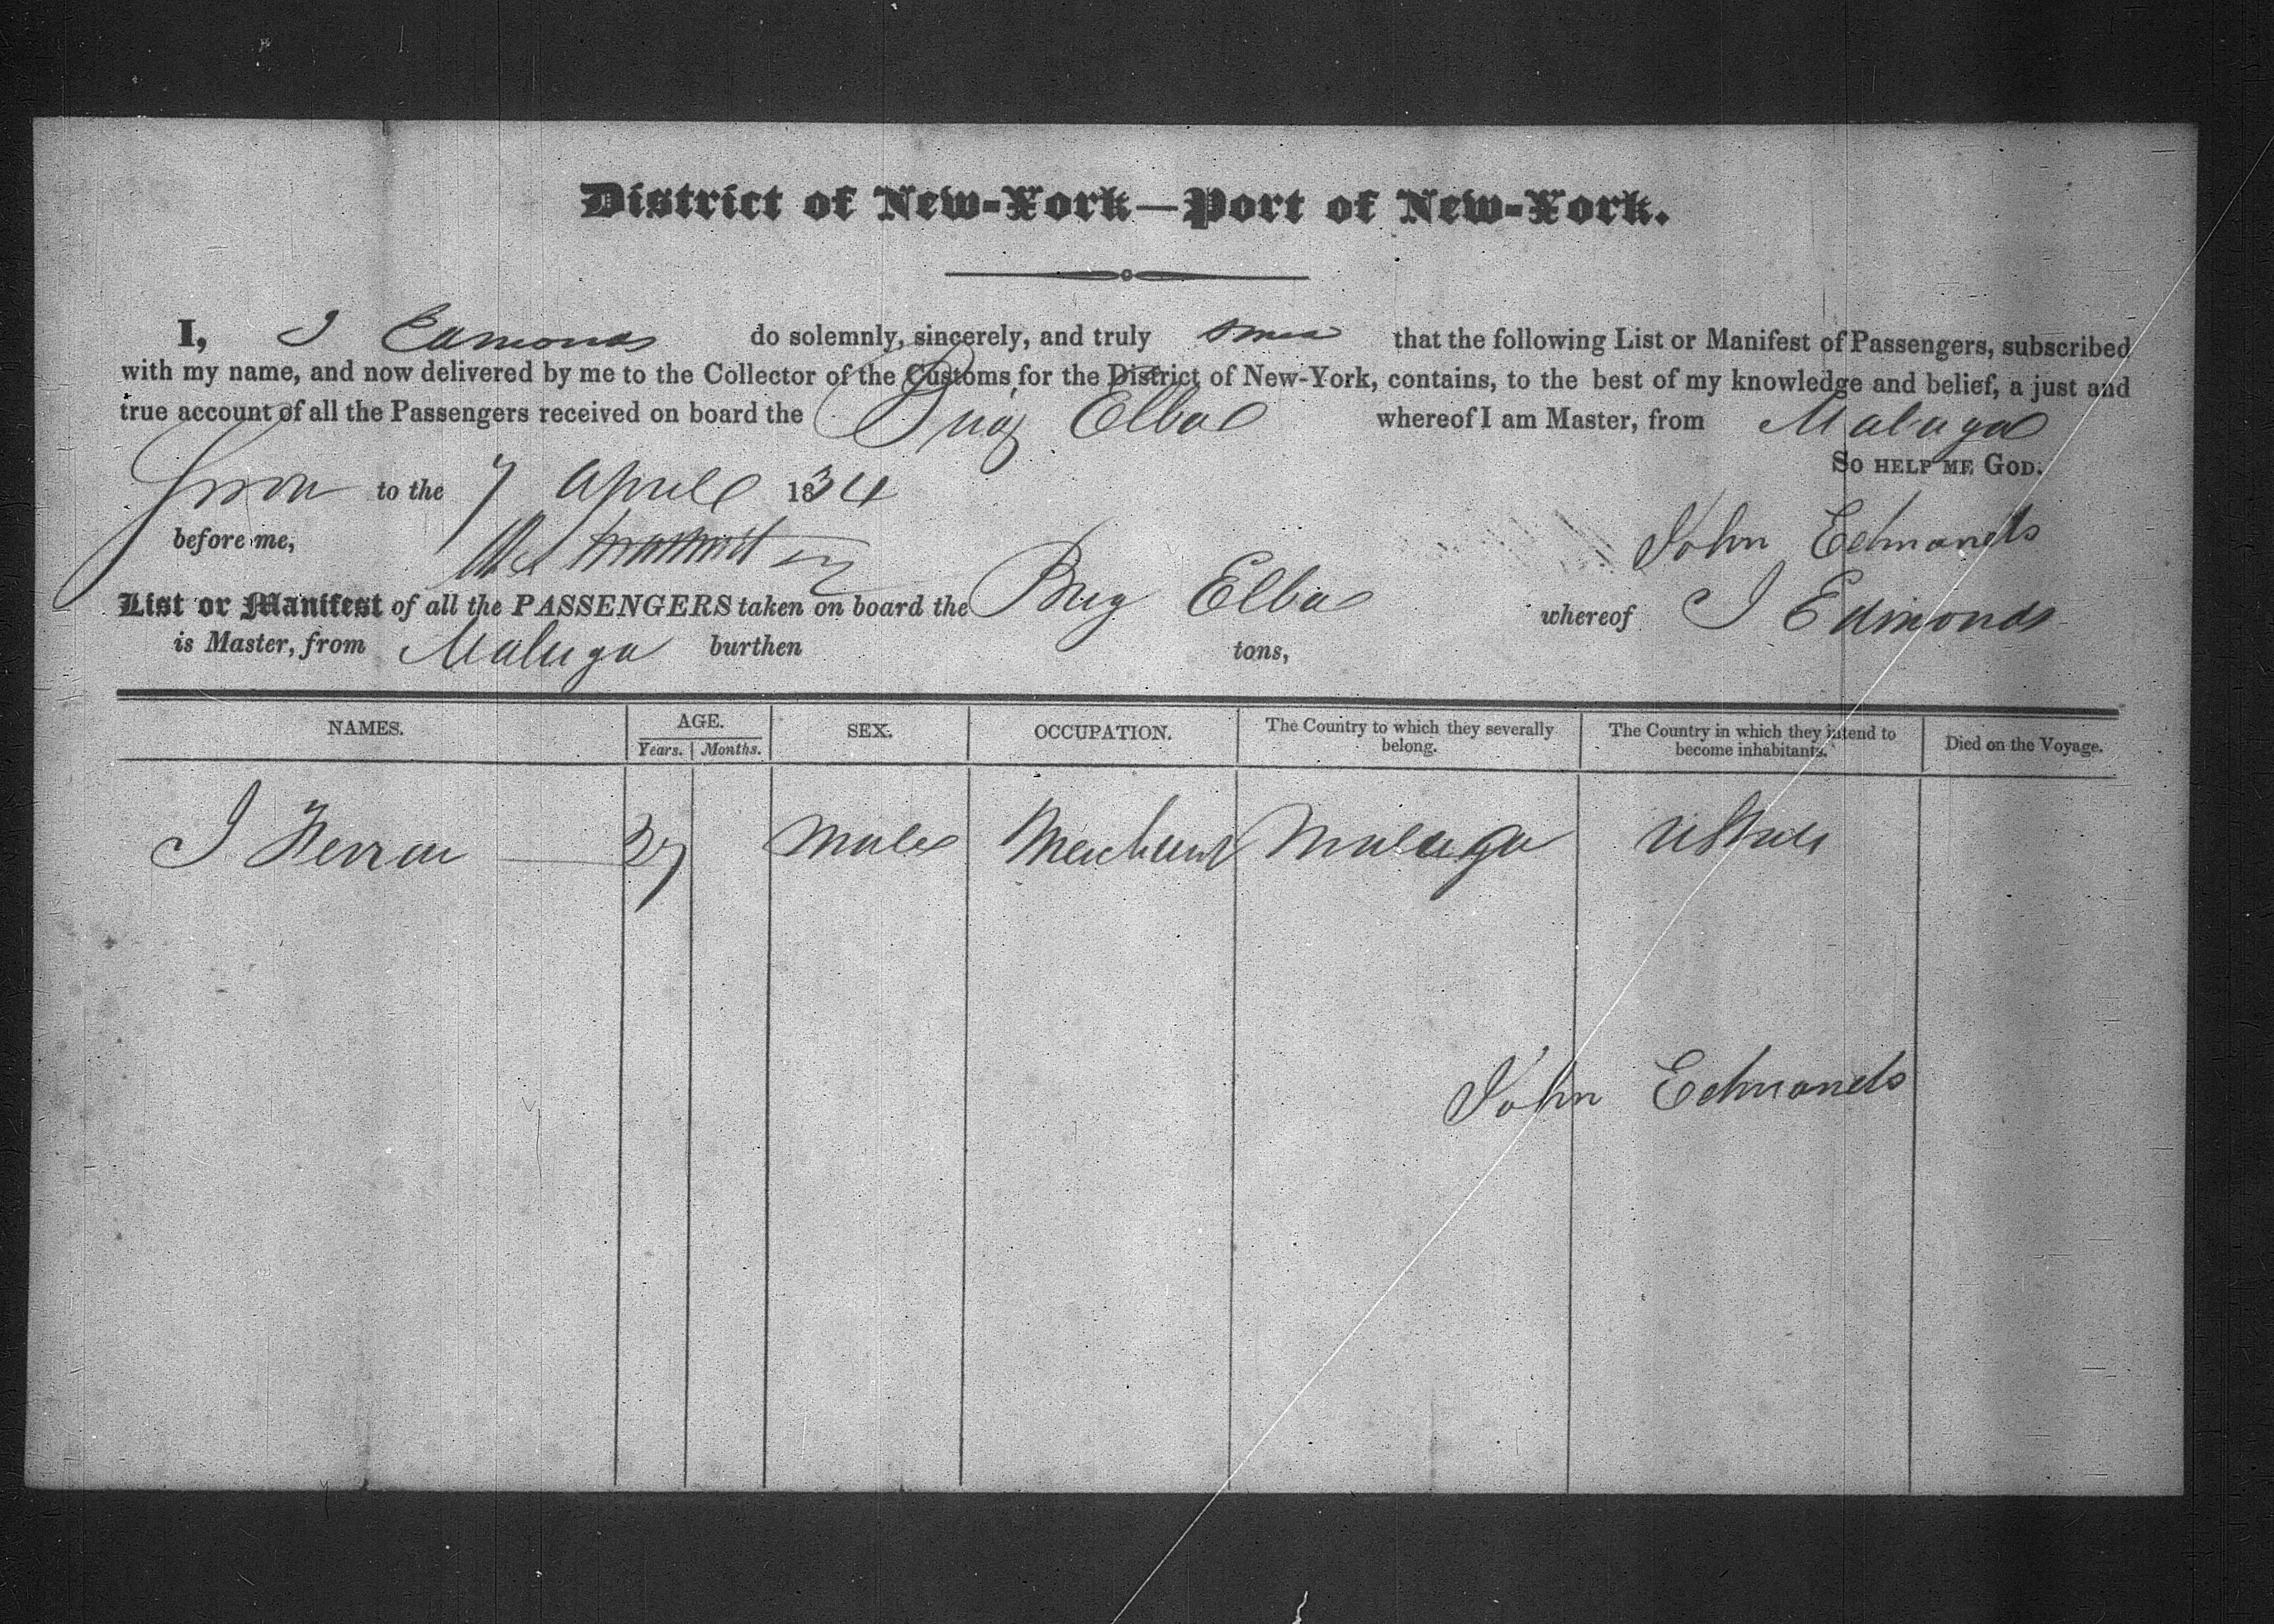 District of New-York—Port of New-York.
I, J Edmonds do solemnly, sincerely, and truly swear that the following List or Manifest of Passengers, subscribed
with my name, and now delivered by me to the Collector of the Customs for the District of New-York, contains, to the best of my knowledge and belief, a just and
true account of all the Passengers received on board the Brig Elba whereof I am Master, from Malaga
So help me God.
Sworn to the 7 April 1834
before me, John Edmonds
List or Manifest of all the PASSENGERS taken on board the Brig Elba whereof J Edmonds
is Master, from Malaga burthen tons,
NAMES. AGE. Years. Months. SEX. OCCUPATION. The Country to which they severally belong. The Country in which they intend to become inhabitants. Died on the Voyage.
J 37 Male Merchant Malaga U States
John Edmonds